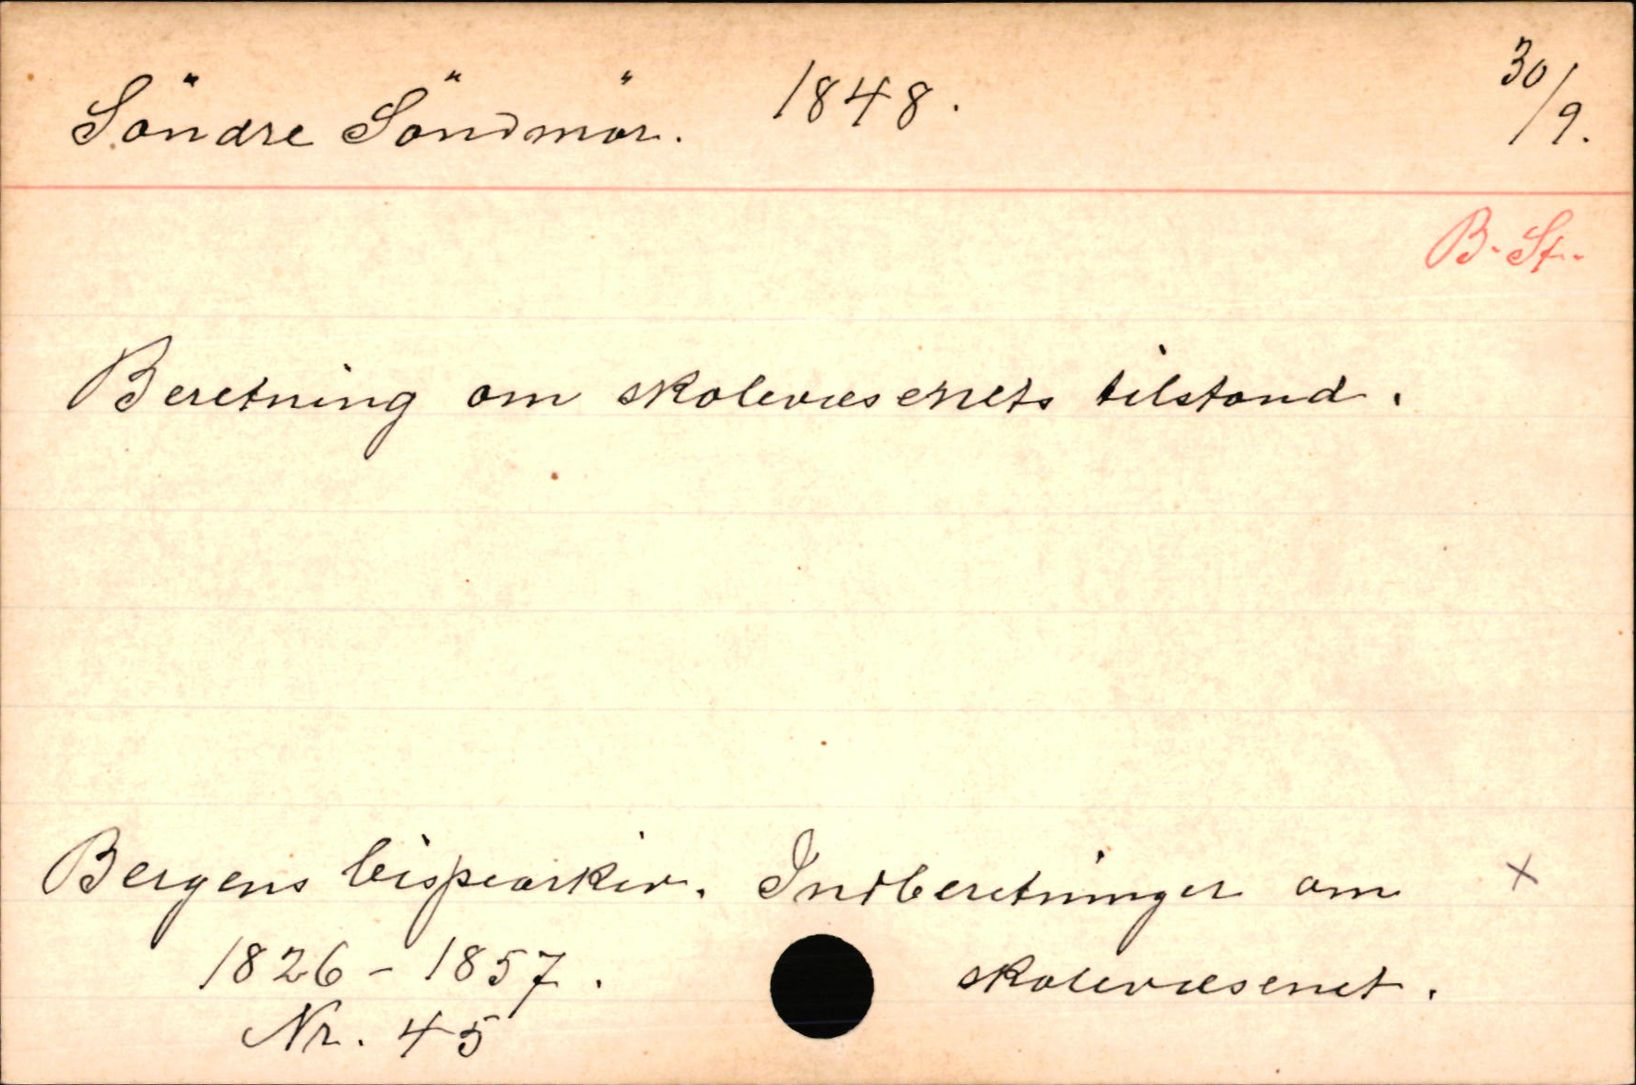 Söndre Söndmör. 1848. 30/9.
B. St.
Beretning om skolevæsenets tilstand.
Bergens bispearkiv. Indberetninger om x
1826 - 1857. skolevæsenet.
Nr. 45